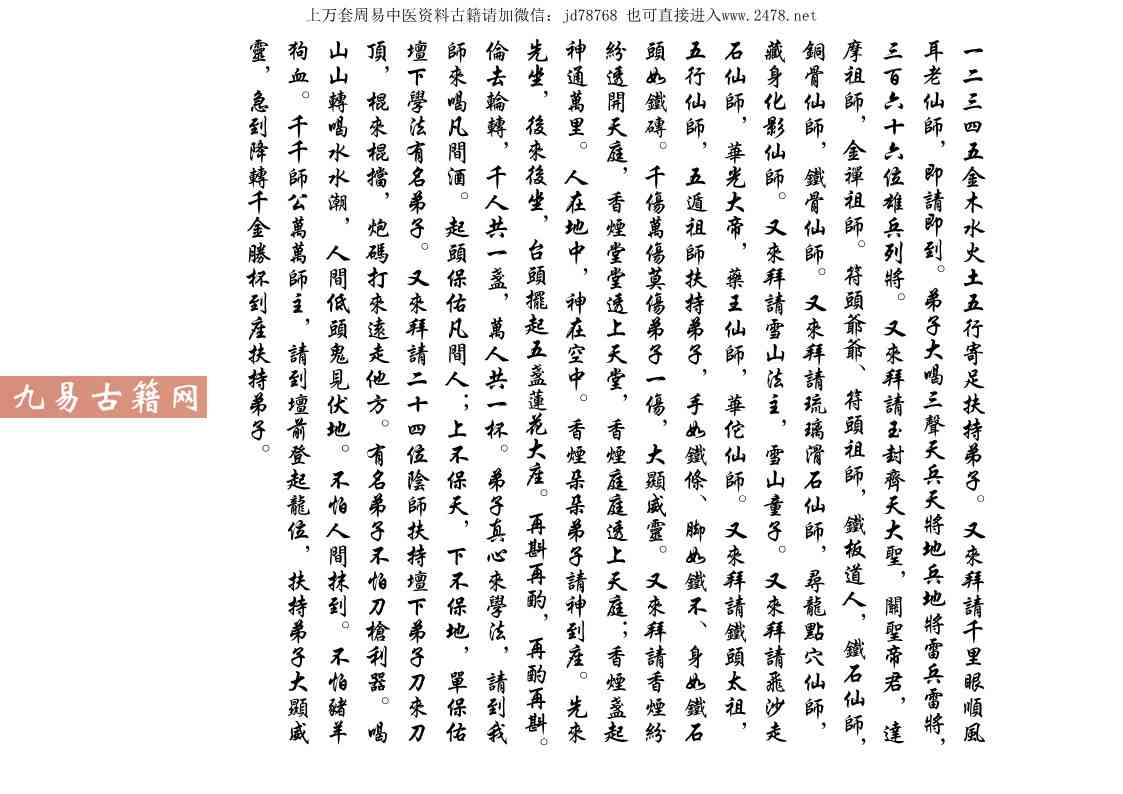 上万套周易中医资料古籍请加微信：jd78768 也可直接进入www.2478.net
一二三四五金木水火土五行寄足扶持弟子。又來拜請千里眼順風
耳老仙師，即請即到。弟子大喝三聲天兵天將地兵地將雷兵雷將，
三百六十六位雄兵列將。又來拜請玉封齊天大聖，關聖帝君，達
摩祖師，金禪祖師。符頭爺爺、符頭祖師，鐵板道人，鐵石仙師，
銅骨仙師，鐵骨仙師。又來拜請琉璃滑石仙師，尋龍點穴仙師，
藏身化影仙師。又來拜請雪山法主，雪山童子。又來拜請飛沙走
石仙師，華光大帝，藥王仙師，華佗仙師。又來拜請鐵頭太祖，
五行仙師，五遁祖師扶持弟子，手如鐵條、脚如鐵不、身如鐵石
頭如鐵磚。千傷萬傷莫傷弟子一傷，大顯威靈。又來拜請香煙紛
紛透開天庭，香煙堂堂透上天堂，香煙庭庭透上天庭；香煙盞起
神通萬里。人在地中，神在空中。香煙朵朵弟子請神到座。先來
先坐，後來後坐，台頭擺起五盞蓮花大座。再斟再酌，再酌再斟。
倫去輪轉，千人共一盞，萬人共一杯。弟子真心來學法，請到我
師來喝凡間酒。起頭保佑凡間人；上不保天，下不保地，單保佑
壇下學法有名弟子。又來拜請二十四位陰師扶持壇下弟子刀來刀
頂，棍來棍擋，炮碼打來遠走他方。有名弟子不怕刀槍利器。喝
山山轉喝水水潮，人間低頭鬼見伏地。不怕人間抹到。不怕豬羊
狗血。千千師公萬萬師主，請到壇前登起龍位，扶持弟子大顯威
靈，急到降轉千金勝杯到座扶持弟子。
九易古籍网